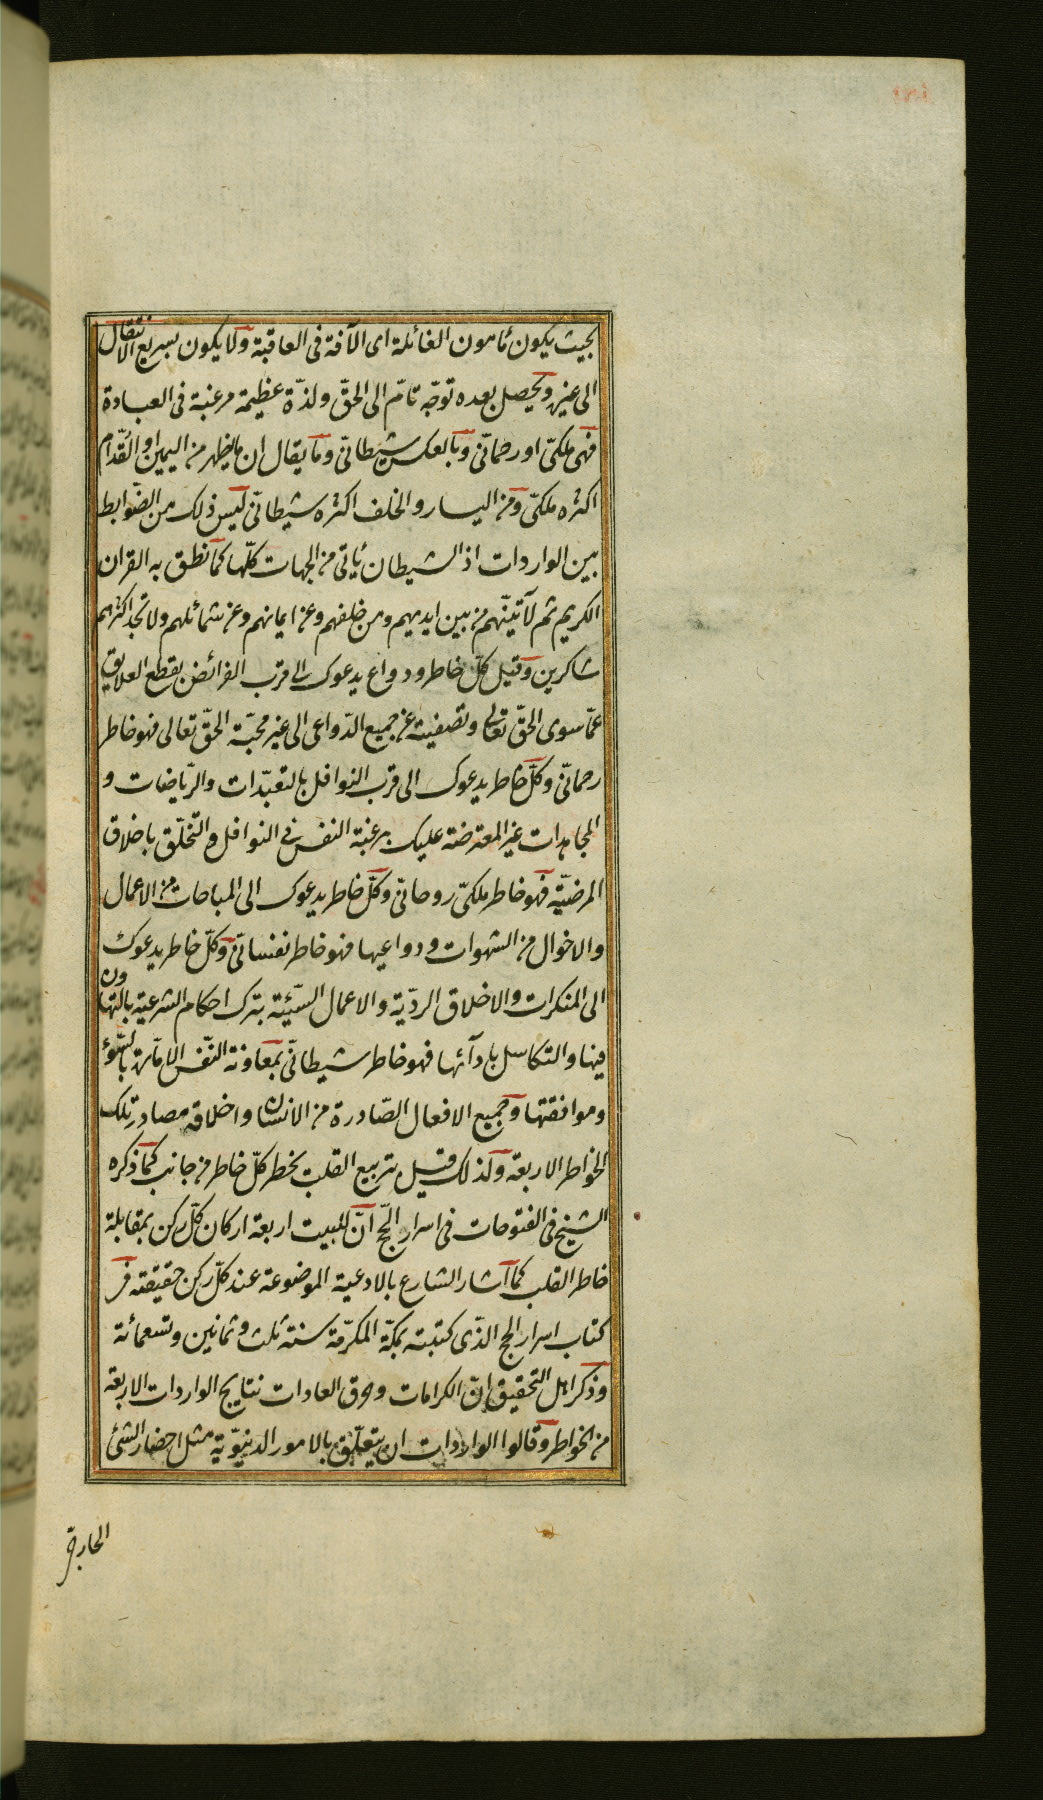 بحيث يكون مأمون الغائلة اى الآفة فى العاقبة ولا يكون بسريع الانتقال
الى غيره ويحصل بعده توجّه تامّ الى الحقّ ولذّة عظيمة مرغبة فى العبادة
فهى ملكىّ او رحمانّى وبالعكس شيطانّى وما يقال ان ما يظهر من اليمين او القدّام
اكثره ملكىّ ومن اليسار والخلف اكثره شيطانّى ليس ذلك من الضّوابط
بين الواردات اذ الشيطان يأتى من الجهات كلّها كما نطق به القران
الكريم ثم لآتينّهم من بين ايديهم ومن خلفهم وعن ايمانهم وعن شمائلهم ولا تجد اكثرهم
شاكرين وقيل كلّ خاطر ودواع يدعوك الى قرب الفرائض بقطع العلايق
عمّا سوى الحقّ تعالى وتصفيته عن جميع الدّواعى الى غير محبّة الحقّ تعالى فهو خاطر
رحمانّى وكلّ خاطر يدعوك الى قرب النوافل بالتعبّدات والرّياضات و
المجاهدات غير المعترضة عليك برغبة النفس فى النوافل والتّخلّق باخلاق
المرضيّة فهو خاطر ملكىّ روحانّى وكلّ خاطر يدعوك الى المباحات من الاعمال
والاخوال من الشهوات ودواعيها فهو خاطر نفسانّى وكلّ خاطر يدعوك
الى المنكرات والاخلاق الرديّة والاعمال السيّئة بترك احكام الشرعية بالتهاون
فيها والتكاسل بادآئها فهو خاطر شيطانّى بمعاونة النّفس الامّارة بالسّوء
وموافقتها وجميع الافعال الصّادرة من الانسان واخلاقه مصادر تلك
الخواطر الاربعة ولذلك قيل بتربيع القلب يخطر كلّ خاطر من جانب كما ذكره
الشيخ فى الفتوحات فى اسرار الحّج انّ للبيت اربعة اركان كلّ ركن بمقابلة
خاطر القلب كما اشار الشارع بالادعية الموضوعة عند كلّ ركن حقيقته فى
كتاب اسرار الحج الذّى كتبته بمكّة المكرّمة سنة ثلث وثمانين وتسعمائة
وذكر اهل التحقيق انّ الكرامات وخرق العادات نتايج الواردات الاربعة
من الخواطر وقالوا الواردات ان يتعلّق بالامور الدنيوّية مثل احضار الشئ